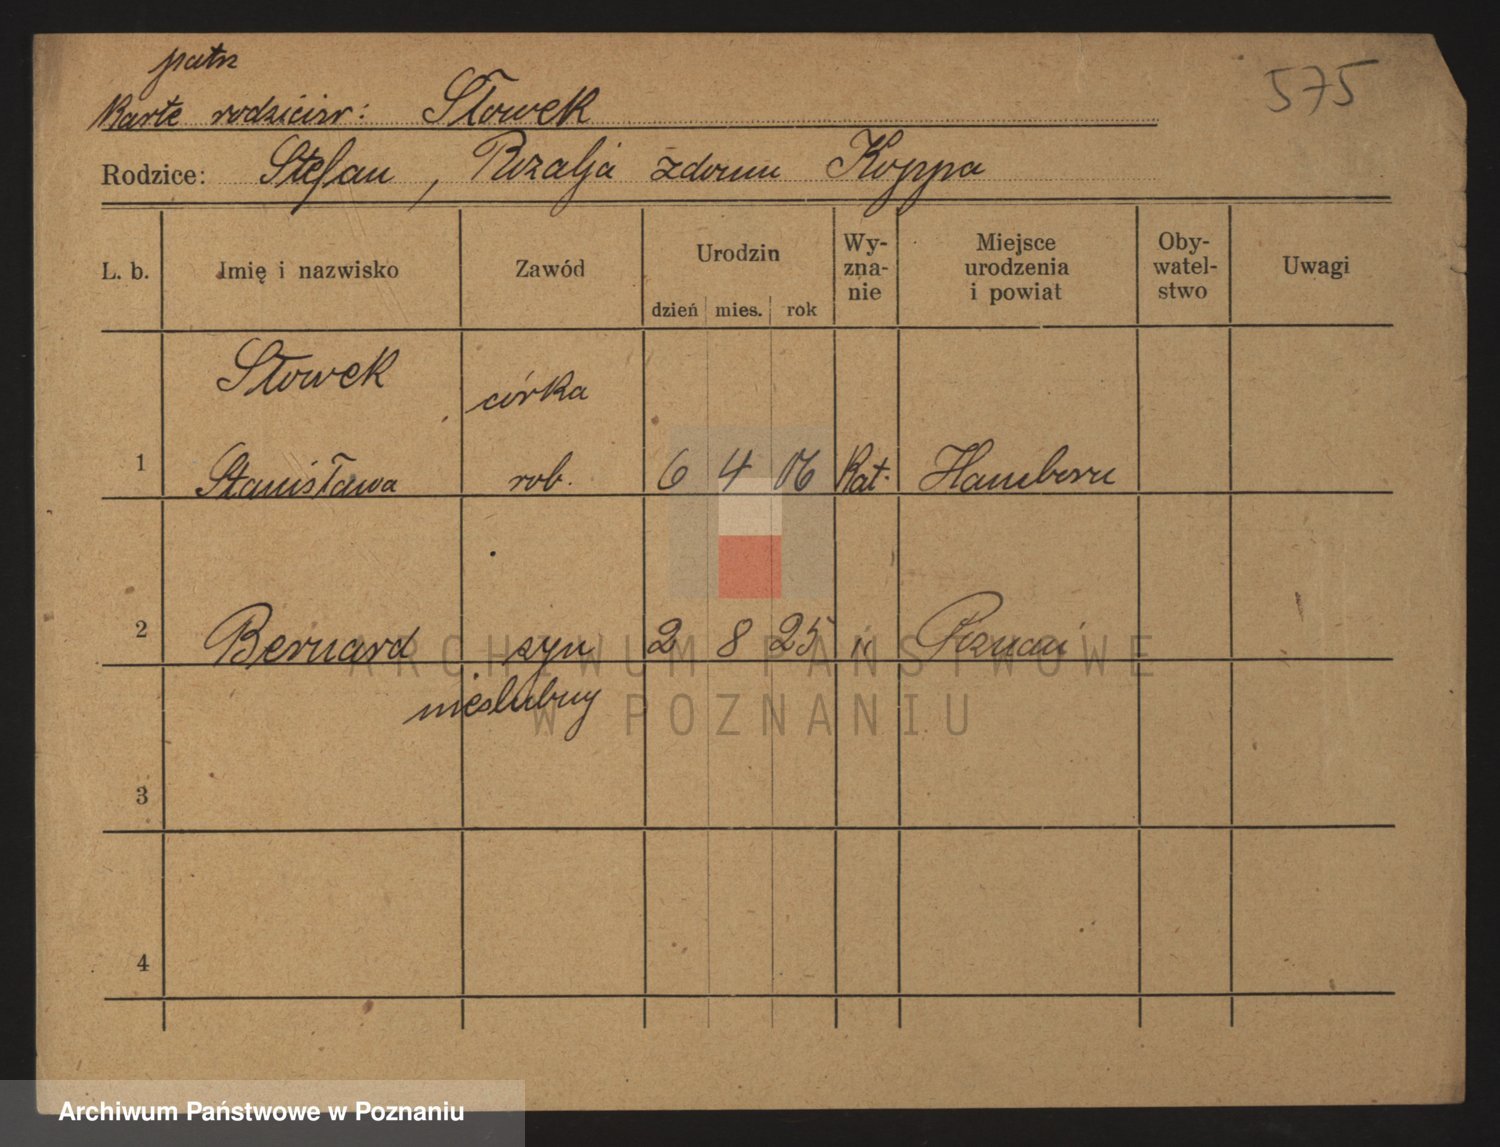 patrz
575
Kartę rodziców: Słowek
Rodzice: Stefan, Rozalja zdomu Koppa
L. b. Imię i nazwisko Zawód Urodzin dzień mies. rok Wy-zna-nie Miejsce urodzenia i powiat Oby-watel-stwo Uwagi
Słowek córka
1 Stanisława rob. 6 4 06 Kat. Hamborn
2 Bernard syn 2 8 25 " Poznań
nieślubny
3
4
ARCHIWUM PAŃSTWOWE
W POZNANIU
Archiwum Państwowe w Poznaniu